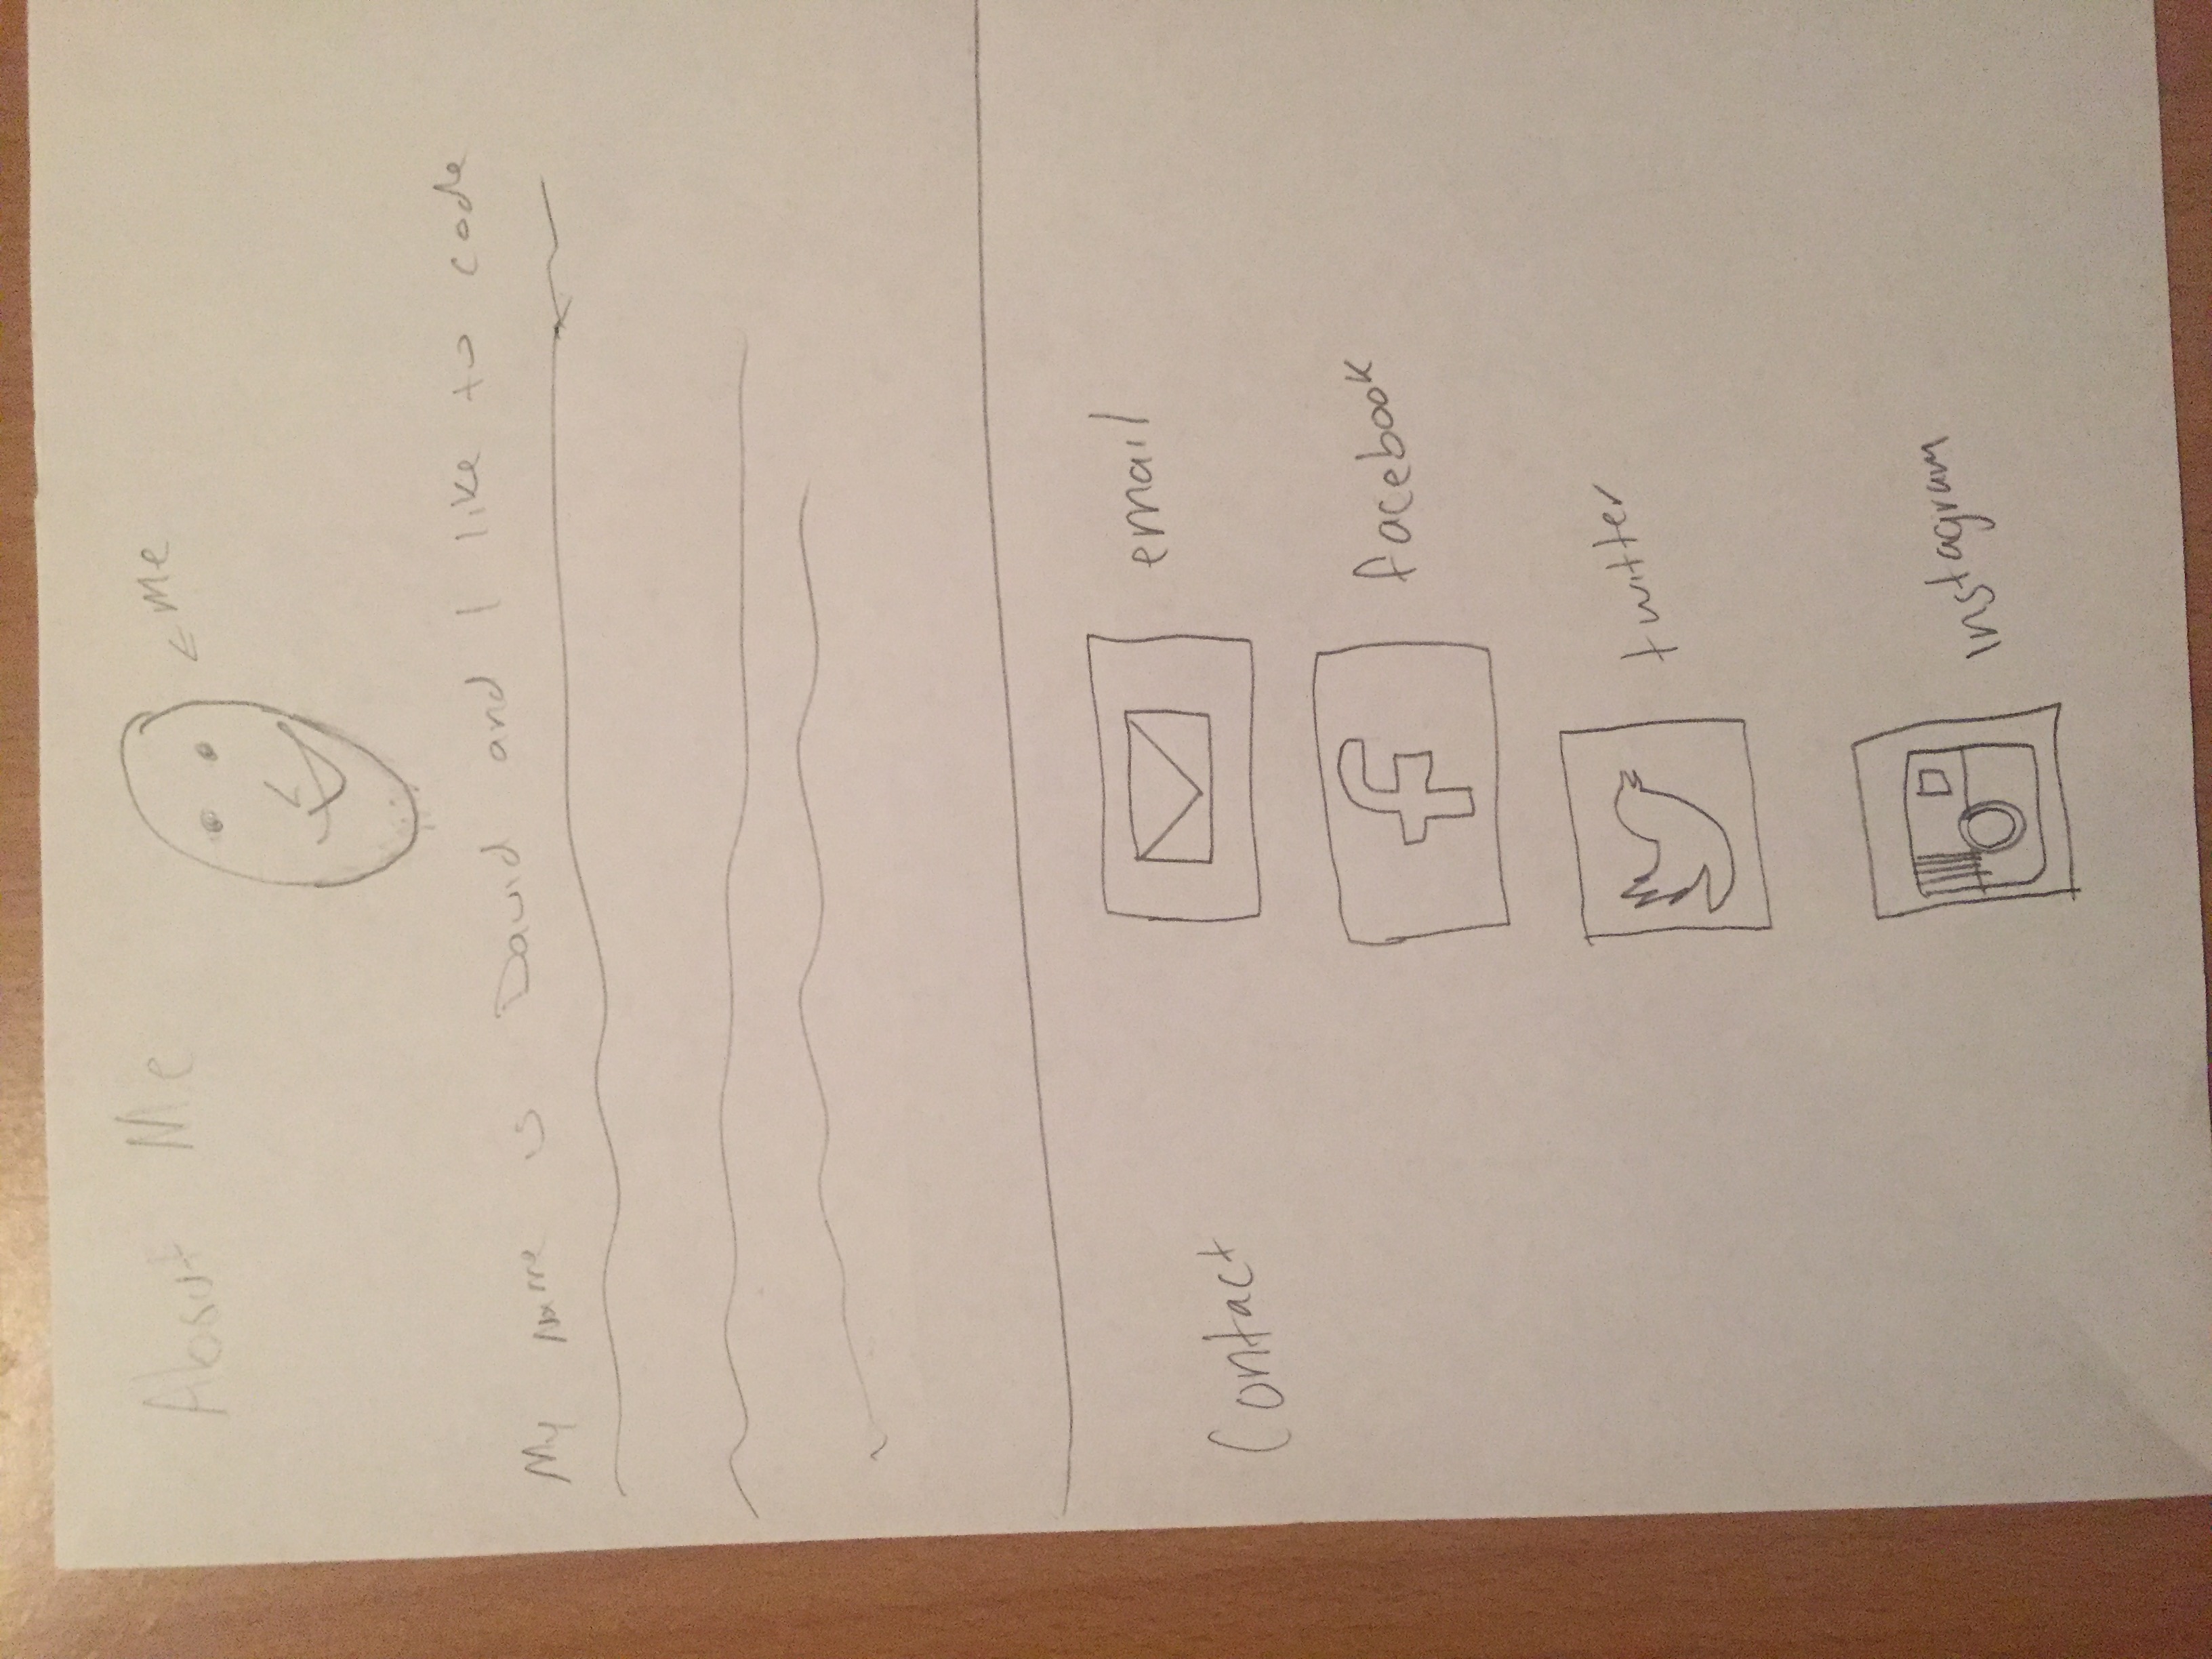 About Me
← Me
My name is David and I like to code
email
Contact
facebook
twitter
Instagram